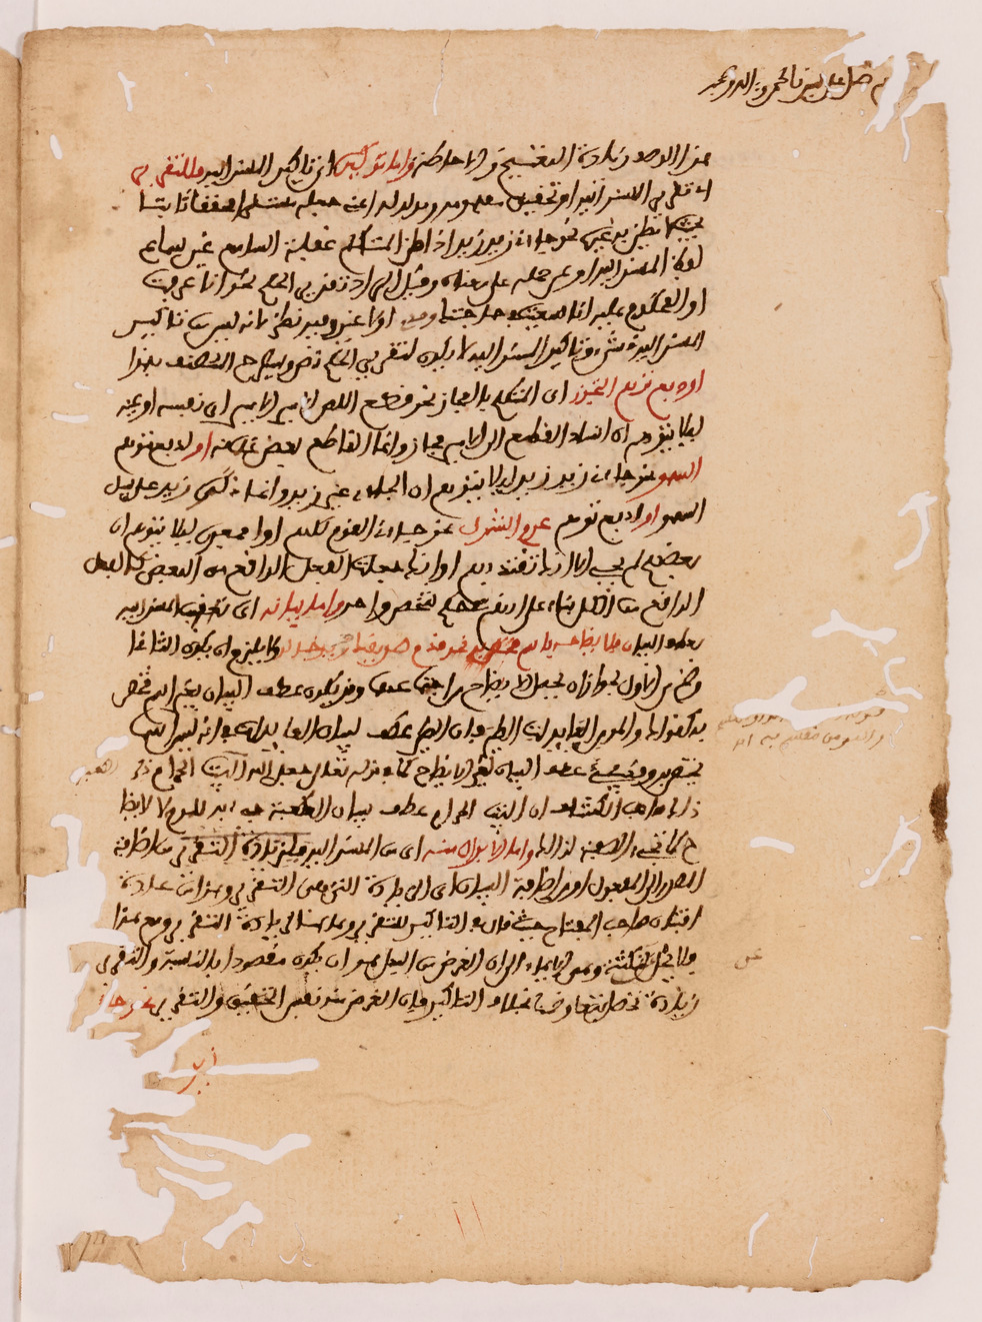 هذا الوصف زيادة التعميم والاحاطة واما توكيده اي تاكيد المسند اليه فللتقرير
اي تقرير المسند اليه اي تحقيق مفهومه ومدلوله اعني جعله مستقرا محققا ثابتا
بحيث لا يظن به غيره نحو جاءني زيد زيد اذا ظن المتكلم غفلة السامع عن سماع
لفظ المسند اليه او عن حمله على معناه وقيل المراد تقرير الحكم نحو انا عرفت
او المحكوم عليه انا سعيت في حاجتك وحدي اولا غيري وفيه نظر لانه ليس من تاكيد
المسند اليه في شيء وتاكيد المسند اليه لا يكون لتقرير الحكم قط وسيصرح المصنف بهذا
او دفع توهم التجوز اي التكلم بالمجاز نحو قطع اللص الامير الامير اي نفسه او عينه
ليلا يتوهم ان اسناد القطع الى الامير مجاز وانما القاطع بعض غلمانه او لدفع توهم
السهو نحو جاءني زيد زيد ليلا يتوهم ان الجاءي غير زيد وانما ذكر زيد على سبيل
السهو او لدفع توهم عدم الشمول نحو جاءني القوم كلهم او اجمعون ليلا يتوهم ان
بعضهم لم يجي الا انك لم تعتد بهم او انك جعلت الفعل الواقع من البعض كالفعل
الواقع من الكل بناء على انهم في حكم شخص واحد واما بيانه اي تعقيب المسند اليه
بعطف البيان فلايضاحه باسم مختص به نحو قدم صديقك خالد ولا يلزم ان يكون الثاني
اوضح من الاول لجواز ان يحصل الايضاح من اجتماعهما وقد يكون عطف البيان بغير اسم مختص
به كقوله والمومن العايذات الطير فان الطير عطف بيان للعايذات مع انه ليس اسما
يختص بها وقد يجيء عطف البيان لغير الايضاح كما في قوله تعالى جعل الله البيت الحرام ذكر
صاحب الكشاف ان البيت الحرام عطف بيان للكعبة جيء به للمدح لا للايضا
ح كما تجيء الصفة لذلك واما الابدال منه اي من المسند اليه فلزيادة التقرير من اضافة
المصدر الى المعمول او من اضافة البيان اي الزيادة التي هي التقرير وهذا من عادة
افتنان صاحب المفتاح حيث قال في التاكيد للتقرير وههنا لزيادة التقرير ومع هذا
فلا يخلو عن نكتة وهي الايماء الى ان الغرض من البدل هو ان يكون مقصودا بالنسبة والتقرير
زيادة تحصل تبعا وضمنا بخلاف التاكيد فان الغرض منه نفس التحقيق والتقرير نحو جا